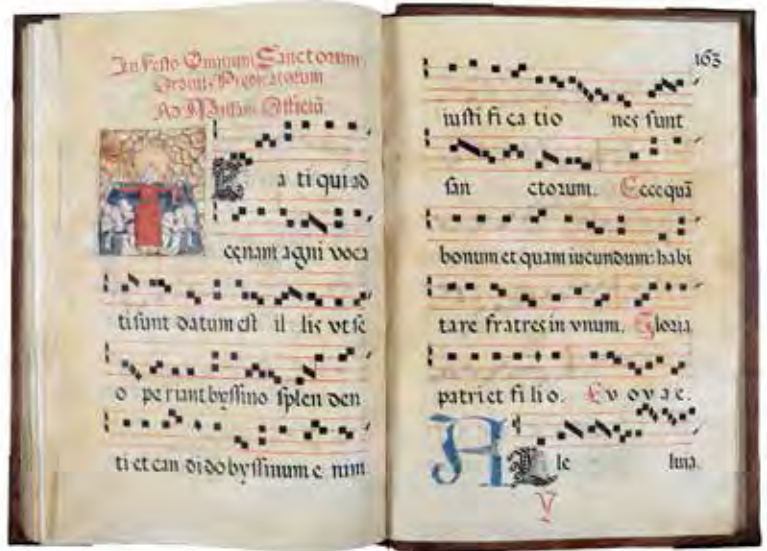 In Festo Omnium Sanctorum
Ordinis Predicatorum
Ad Missam Officiũ
a ti qui ad
cenam agni voca
ti sunt datum est il lis vt se
o periant byssino splen den
ti et can dido byssinum e nim
163
iusti fi ca tio nes sunt
san ctorum. Ecce quã
bonum et quam iucundum: habi
tare fratres in vnum. Gloria
patri et fi li o. Ev o v a e.
Al le luia.
V